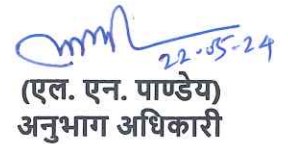 22-05-24
(एल. एन. पाण्डेय)
अनुभाग अधिकारी